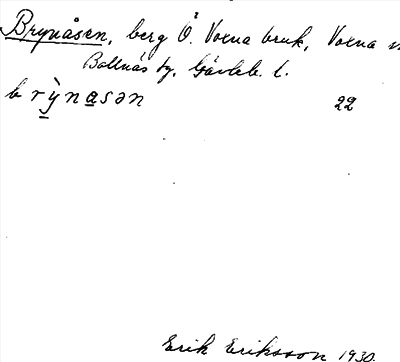 Brynåsen, berg Ö. Voxna bruk, Voxna
Bollnäs tg. Gävleb. l.
brỳnasən 22
Erik Eriksson 1930.